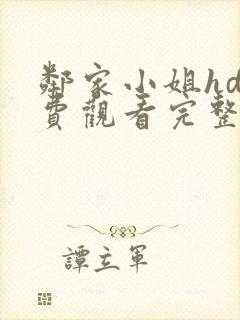 鄰家小姐hd
費觀看完整
譚立軍